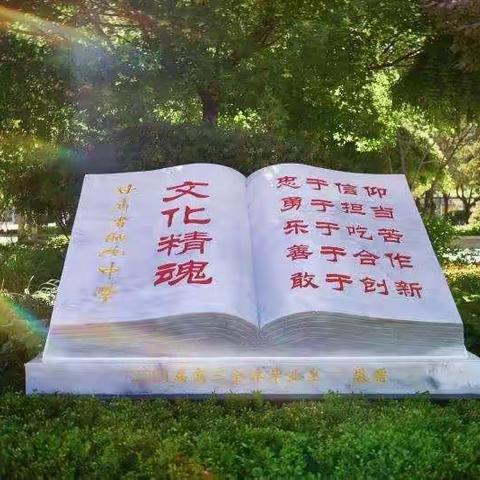 甘肃省中学
文化精魂
忠于信仰
勇于担当
乐于吃苦
善于合作
敢于创新
届高三全体毕业生